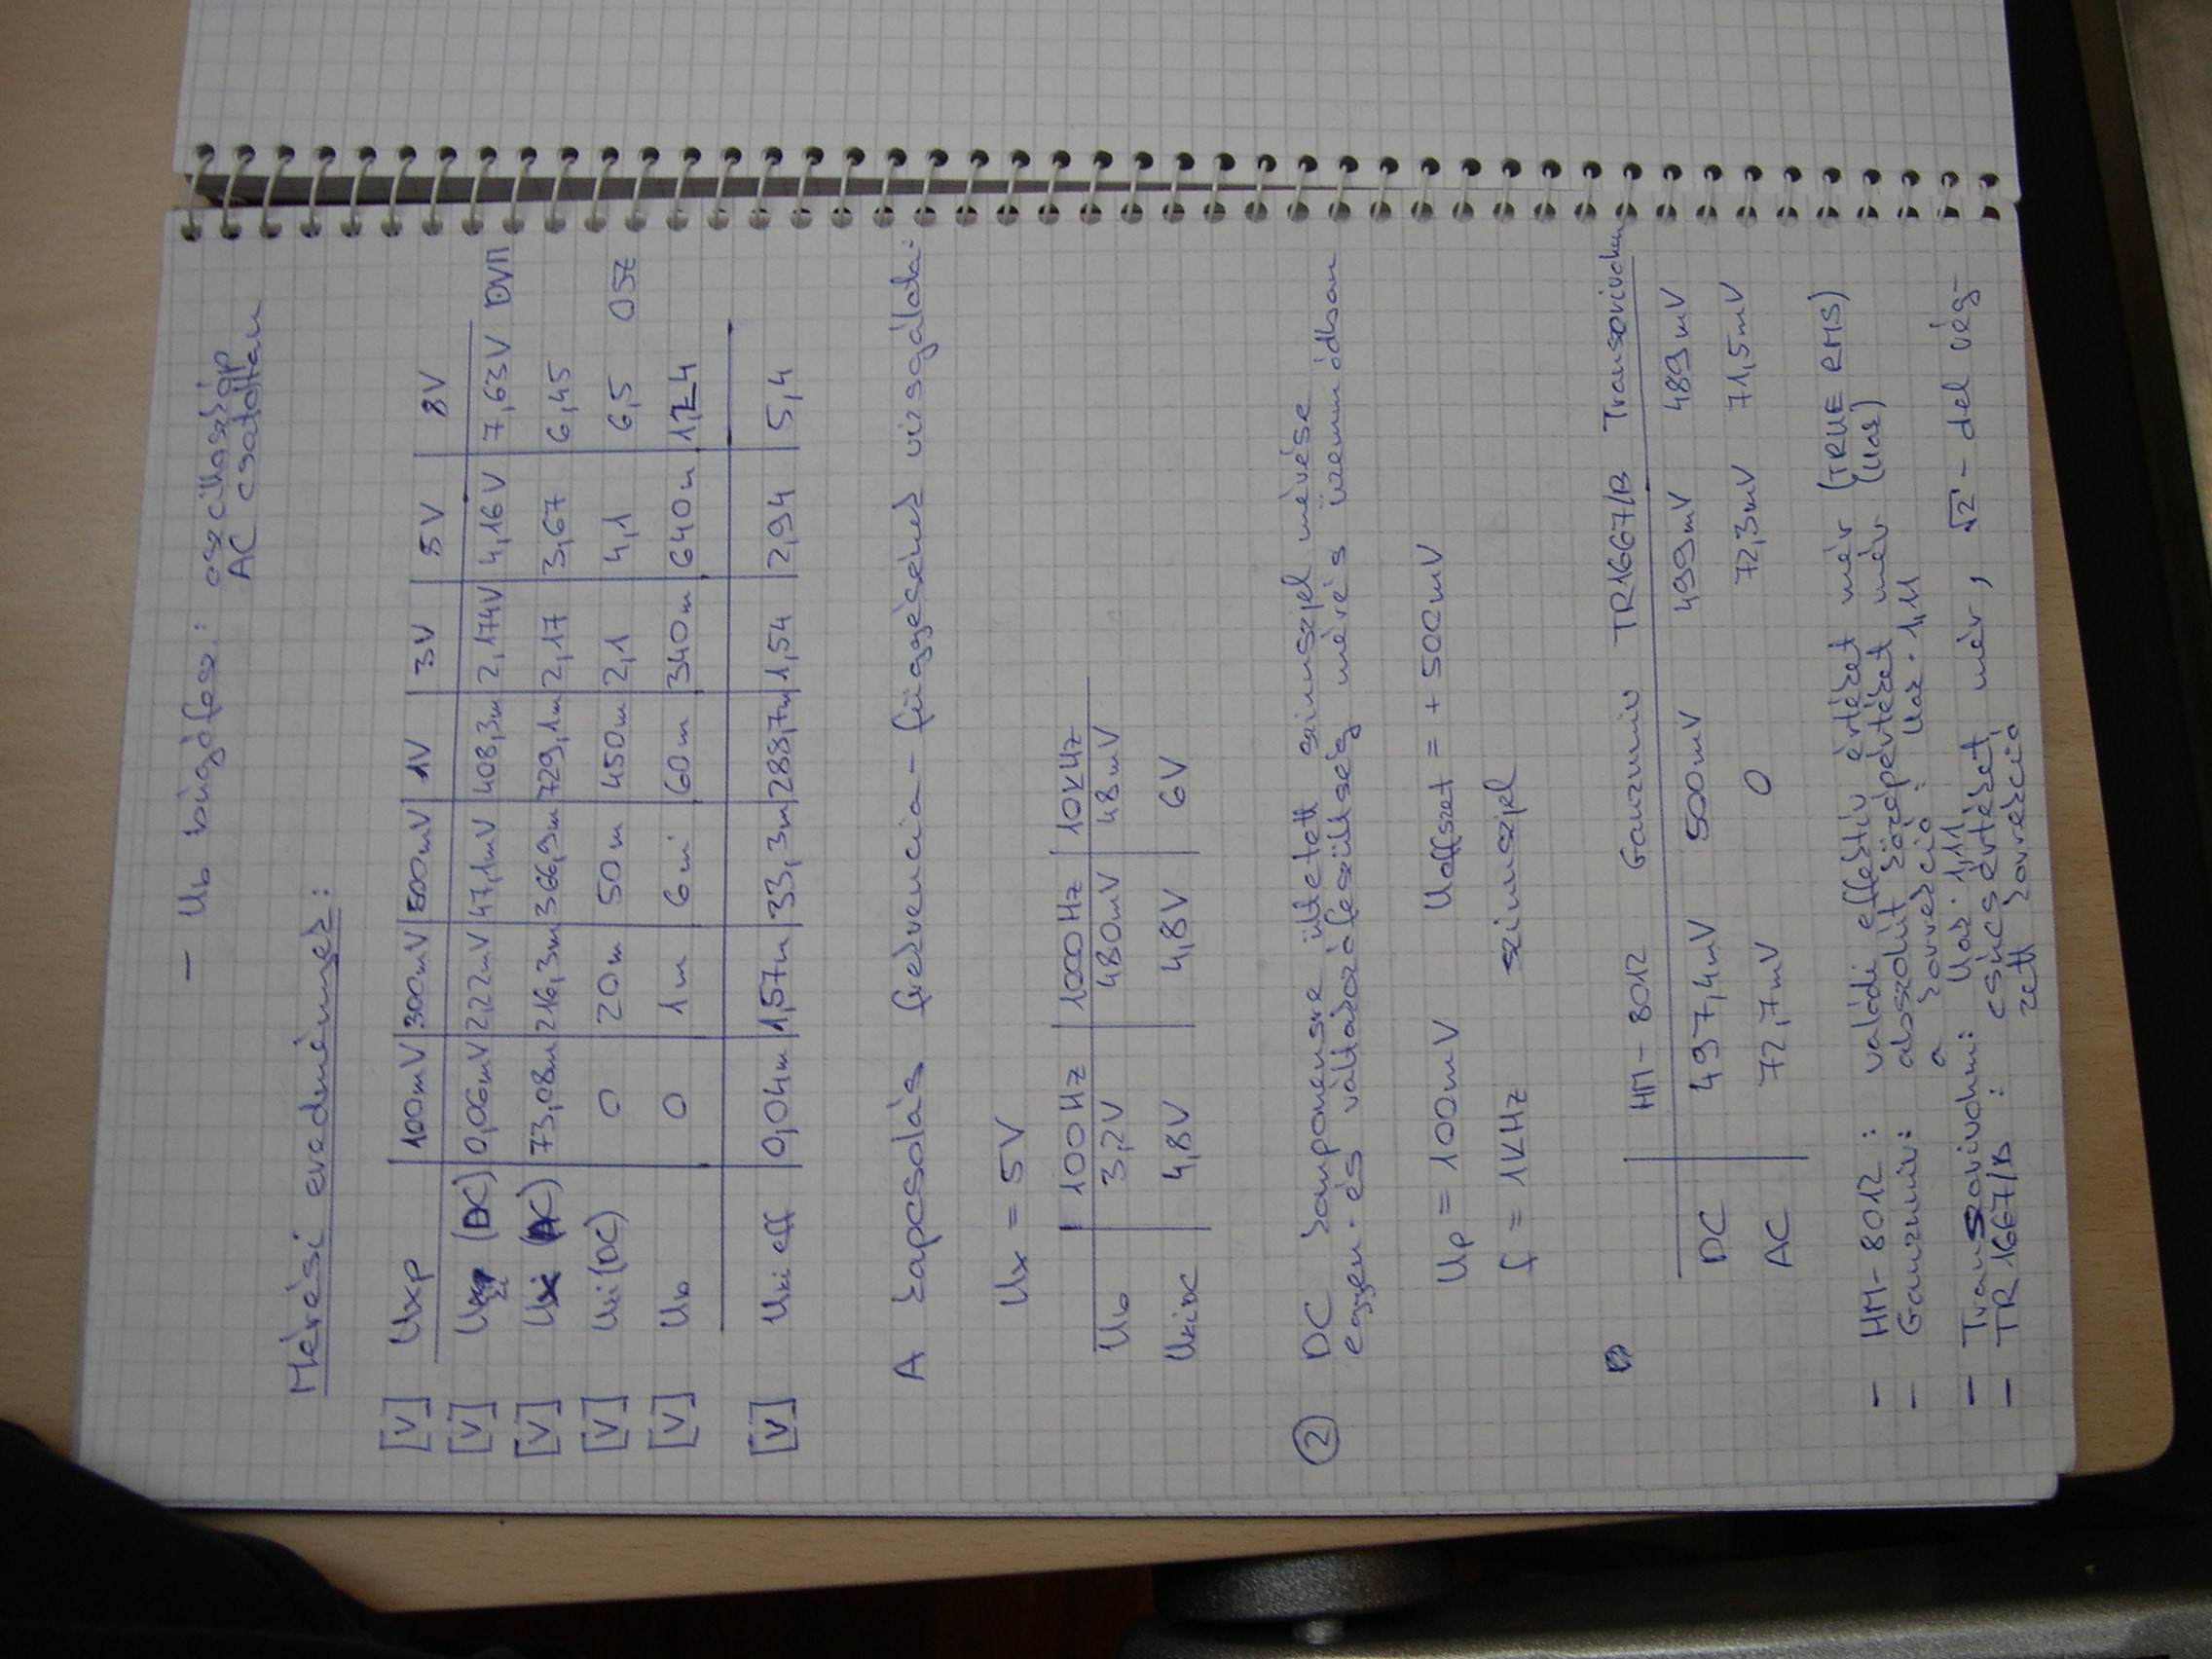 - Ub búgófesz.: oszcilloszkóp
AC csatoltan
Mérési eredmények:
[V] Uxp 100mV 300mV 500mV 1V 3V 5V 8V
[V] Uki (DC) 0,06mV 2,22mV 47,1mV 408,3m 2,174V 4,16V 7,63V DVM
[V] Ux (AC) 73,08m 216,3m 366,9m 729,1m 2,17 3,67 6,45
[V] Uki (DC) 0 20m 50m 450m 2,1 4,1 6,5 OSZ
[V] Ub 0 1m 6m 60m 340m 640m
[V] Uki eff 0,04m 1,57m 33,3m 288,7m 1,54 2,94 5,4
A kapcsolás frekvencia-függésének vizsgálata:
Ux = 5V
100Hz 1000Hz 10kHz
Ub 3,2V 480mV 48mV
UkiDC 4,8V 4,8V 6V
② DC komponensre ültetett szinuszjel mérése
egyen- és váltakozófeszültség mérés üzemmódban
Up = 100mV Uoffszet = +500mV
f = 1kHz szinuszjel
HM-8012 Ganzuniv TR1667/B Transzivolum
DC 497,4mV 500mV 499mV 489mV
AC 72,7mV 0 72,3mV 71,5mV
- HM-8012: valódi effektív értéket mér (TRUE RMS)
- Ganzuniv: abszolút középértéket mér (Uak)
a korrekció: Uak · 1,11
- Transzivolum: Uak · 1,11
- TR 1667/B : csúcsértéket mér, √2 - del vég-
zett korrekció